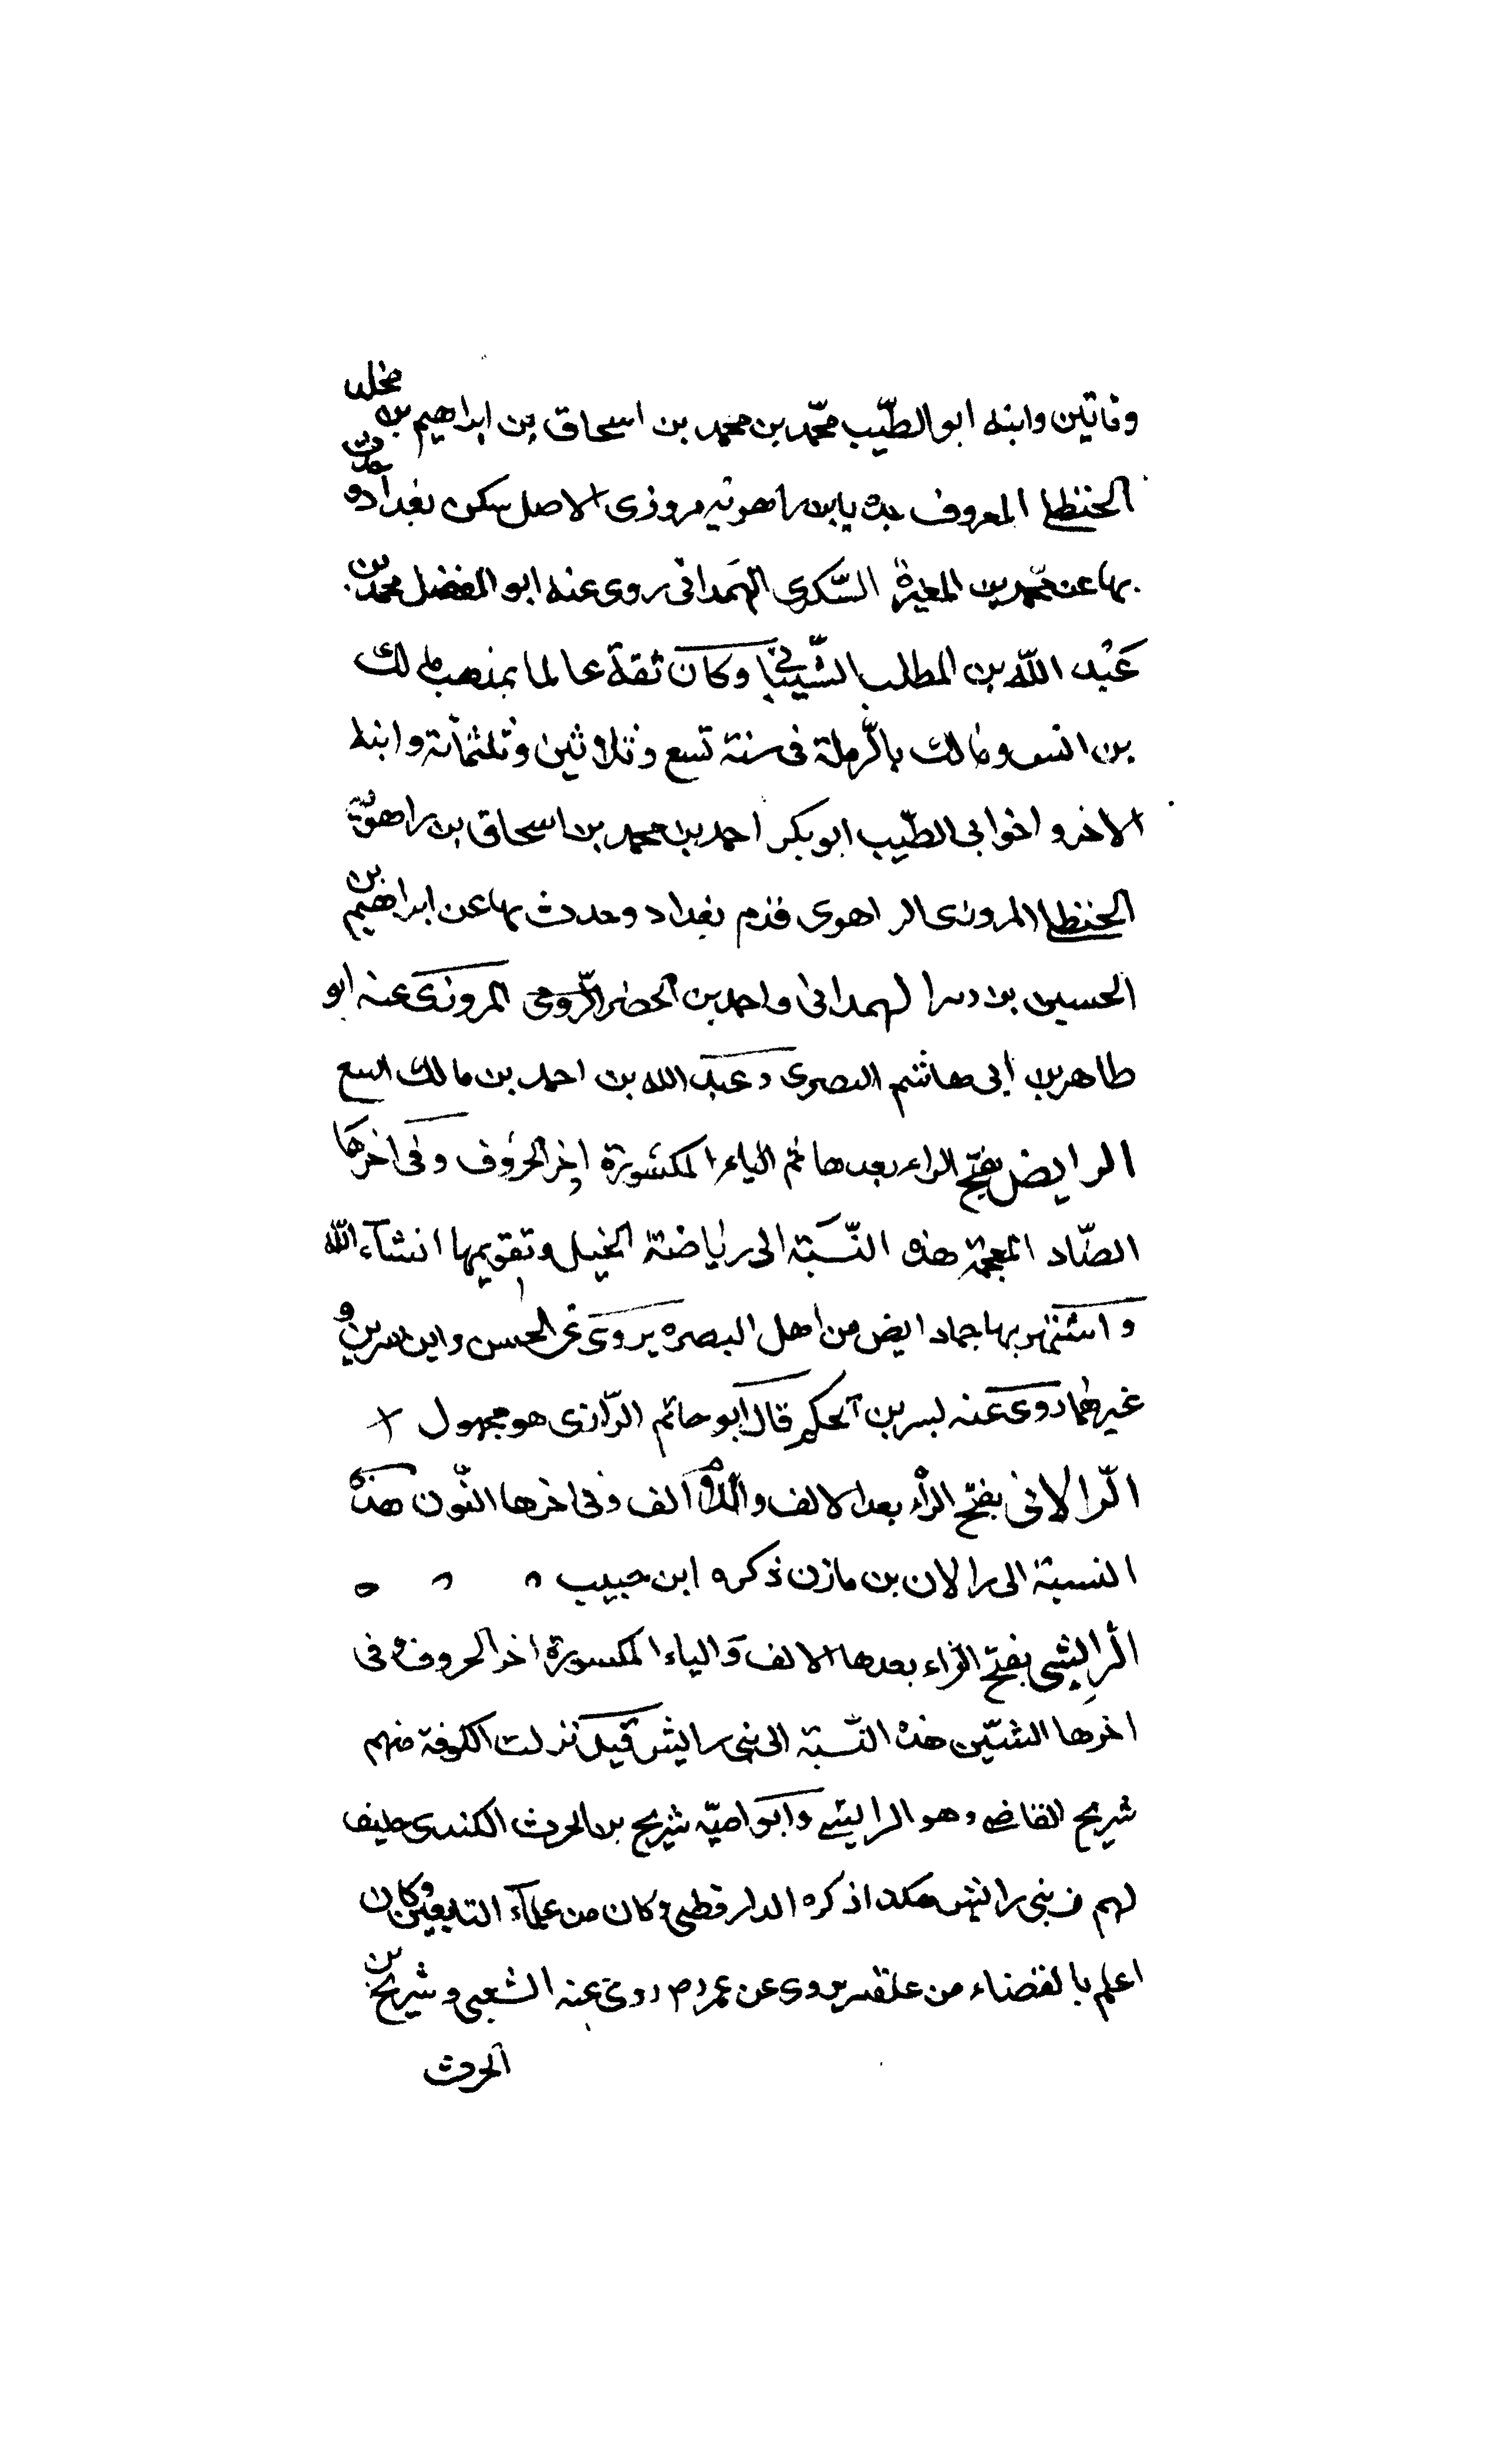 وثاتين وابنه ابو الطيّب محمّد بن محمد بن اسحاق بن ابراهيم بن مخلد
الحنظلي المعروف جده يابن راهويه مروزى الاصل سكن بغداد وحدث
بها عن محمد بن المغيرة السّكرى الهمدانى روى عنه ابو المفضل محمد بن
عَبْد اللّه بن المطلب الشّيبانى وكان ثقة عالما بمذهب مالك
بن انس ومالك بالرّملة فى سنة تسع وثلاثين وثلثمائة وابنه
الاخر واخو ابى الطيّب ابو بكر احمد بن محمد بن اسحاق بن راهويه
الحنظلي المروزى الراهوى قدم بغداد وحدث بها عن ابراهيم بن
الحسين بن الهمدانى واحمد بن الخضر المروزى عنه ابو
طاهر بن ابى هاشم البصرى وعبد الله بن احمد بن مالك البيع
الرايض بفتح الراء بعدها ثم الياء المكسورة اخر الحروف وفى اخرها
الضّاد المعجمة هذه النّسبة الى رياضة الخيل وتقويمها انشآء اللّه
واشتهر بها حماد ايض من اهل البصره يروى عن الحسن وابن سيرين و
غيرهما روى عنه لبسر بن الحكم قال ابو حاتم الرّازى هو مجهول
الرّالانى بفتح الرآء بعد الالف والله الف وفى اخرها النّون هذه
النسبة الى رالان بن مازن ذكره ابن حبيب
الرايشى بفتح الرّاء بعدها الالف والياء المكسورة اخر الحروف وفى
اخرها الشّين هذه النّسبة الى بنى رايش قيل نزلت الكوفة منهم
شريح القاضى وهو الرايشى وابو اميّه شريح بن الحرث الكندى حليف
لهم من بنى رائش هكذا ذكره الدار قطنى وكان من علمآء التابعين وكان
اعلم بالقضاء من علقمه يروى عن عمر روى عنه الشعبى وشريح بن
الحرث